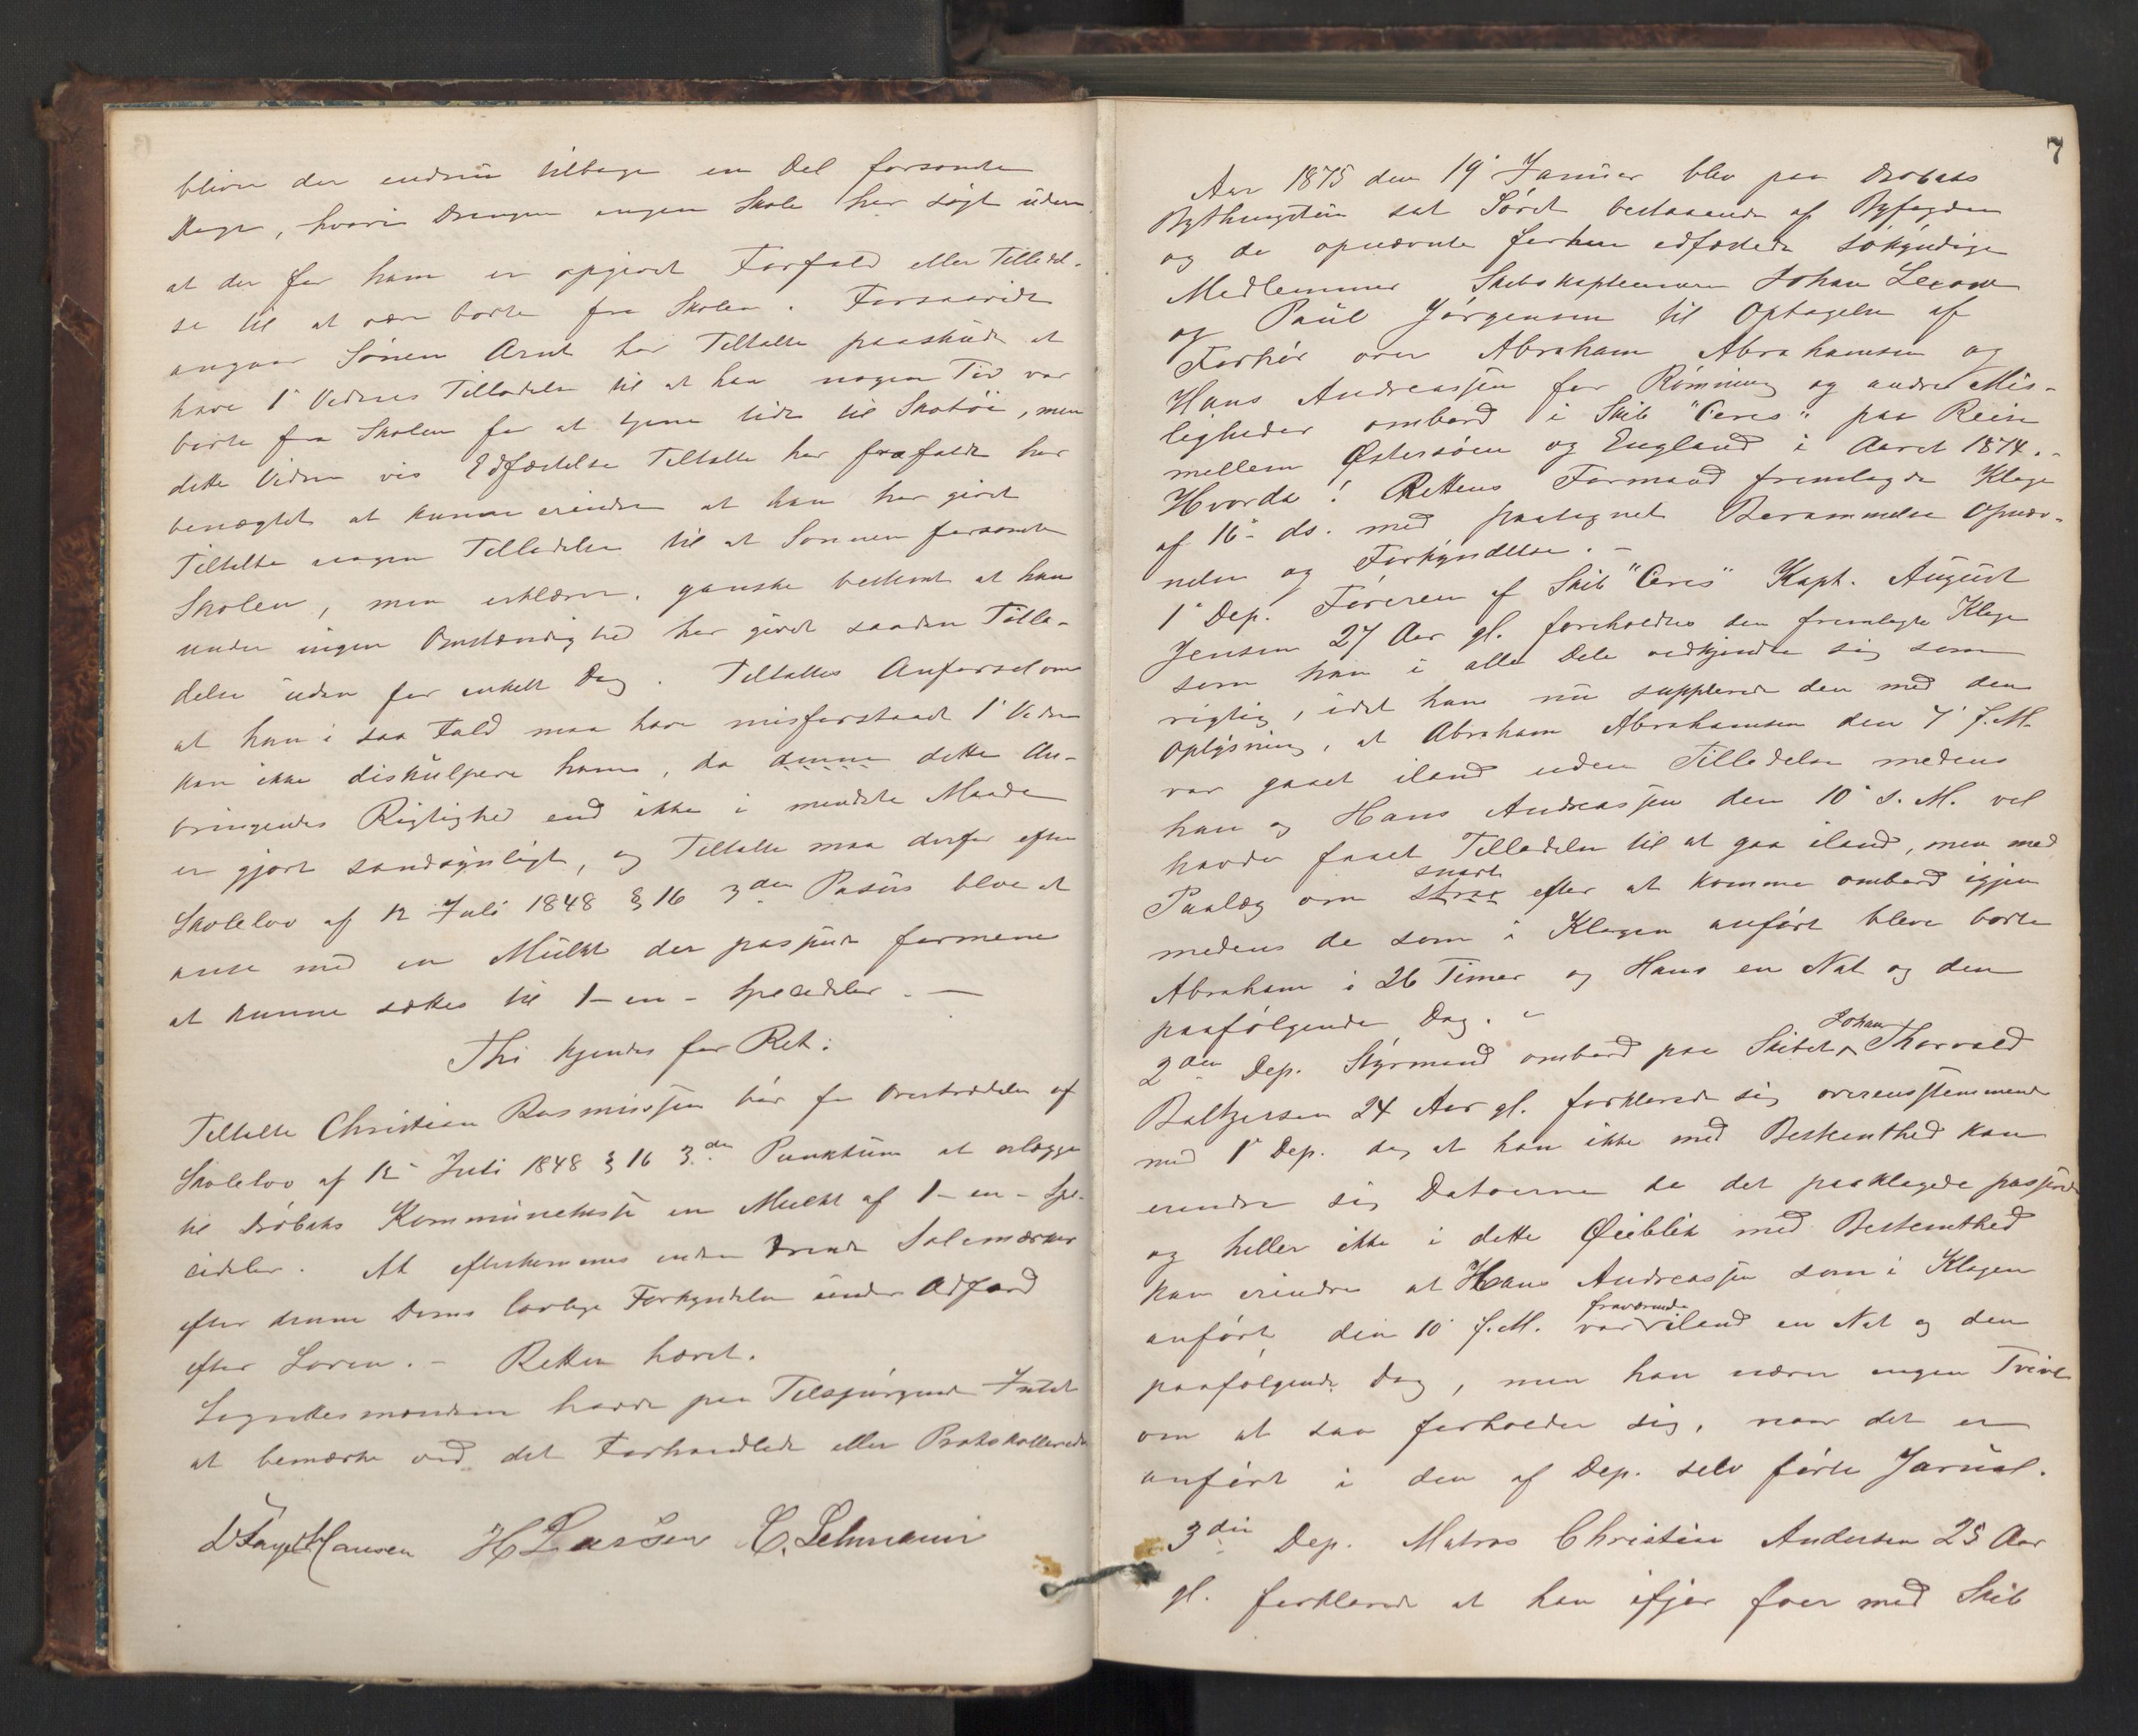 bliver der endnu tilbage en Del forsomte
Dage, hvori Drengen ingen Skole har søgt uden
at der for ham er opgivet Forfald eller Tilladel-
se til at være borte fra Skolen. Forsaavidt
angaar Sønnen Arnt har Tiltalte paaskudt at
have 1° Vidnes Tilladelse til at han nogen Tid var
borte fra Skolen for at tjene lidt til Skotøi, men
dette Vidne vis Edfæstelse Tiltalte har frafaldt har
benægtet at kunne erindre at han har givet
Tiltalte nogen Tilladelse til at Sønnen forsomte
Skolen, men erklærer ganske bestemt at han
under ingen Omstændighed har givet saadan Tilla-
delse uden for enkelt Dag. Tiltaltes Anførsel om
at han i saa Fald maa have misforstaaet 1° Vidne
kan ikke diskulpere ham, da denne dette An-
bringendes Rigtighed end ikke i mindste Maade
er gjort sandsynligt, og Tiltalte maa derfor efter
Skolelov af 12 Juli 1848 § 16 3die Passus blive at
anse med en Mulkt der passende formenes
at kunne sættes til 1 - en - Speciedaler. —
Thi kjendes for Ret:
Tiltalte Christian Rasmussen bør for Overtrædelse af
Skolelov af 12 Juli 1848 § 16 3die Punktum at erlægge
til Drøbaks Kommunekasse en Mulkt af 1 - en - Spe-
ciedaler. At efterkommes inden trende Solemærker
efter denne Doms lovlige Forkyndelse under Adfærd
efter Loven. - Retten hævet.
Lagrettesmændene havde paa Tilspørgende Intet
at bemærke ved det Forhandlede eller Protokollerede
H Larsen C. Lehmann
7
Aar 1875 den 19° Januar blev paa Drøbaks
Bythingstue sat Søret bestaaende af Byfogden
og de opnævnte forhen edfæstede søkyndige
Medlemmer Skibskapteinerne Johan Lexow
og Paul Jørgensen til Optagelse af
Forhør over Abraham Abrahamsen og
Hans Andreassen for Rømning og andre Mis-
ligheder ombord i Skib "Ceres" paa Reise
mellem Østersøen og England i Aaret 1874.-
Hvorda! Rettens Formand fremlagde Klage
af 16° ds. med paategnet Berammelse Opnæv-
nelse og Forkyndelse. -
1° Dep. Føreren af Skib "Ceres" Kapt. August
Jensen 27 Aar gl. foreholdtes den fremlagte Klage
som han i alle Dele vedkjendte sig som
rigtig, idet han nu supplerede den med den
Oplysning, at Abraham Abrahamsen den 7° s. M.
var gaaet iland uden Tilladelse medens
han og Hans Andreassen den 10° s. M. vel
havde faaet Tilladelse til at gaa iland, men med
Paalæg om strax snart efter at komme ombord igjen
medens de som i Klagen anført bleve borte
Abraham i 26 Timer og Hans en Nat og den
paafølgende Dag. -
2den Dep. Styrmand ombord paa Skibet Johan Thorvald
Baltzersen 24 Aar gl. forklarede sig overensstemmende
med 1° Dep. dog at han ikke med Bestemthed kan
erindre sig Datoerne da det paaklagede passerede
og heller ikke i dette Øieblik med Bestemthed
kan erindre at Hans Andreassen som i Klagen
anført den 10° s. M. var fraværende iland en Nat og den
paafølgende Dag, men han nærer ingen Tvivl
om at saa forholder sig, naar det er
anført i den af Dep. selv førte Jurnal.
3die Dep. Matros Christian Andersen 25 Aar
gl. forklarede at han ifjor foer med Skib